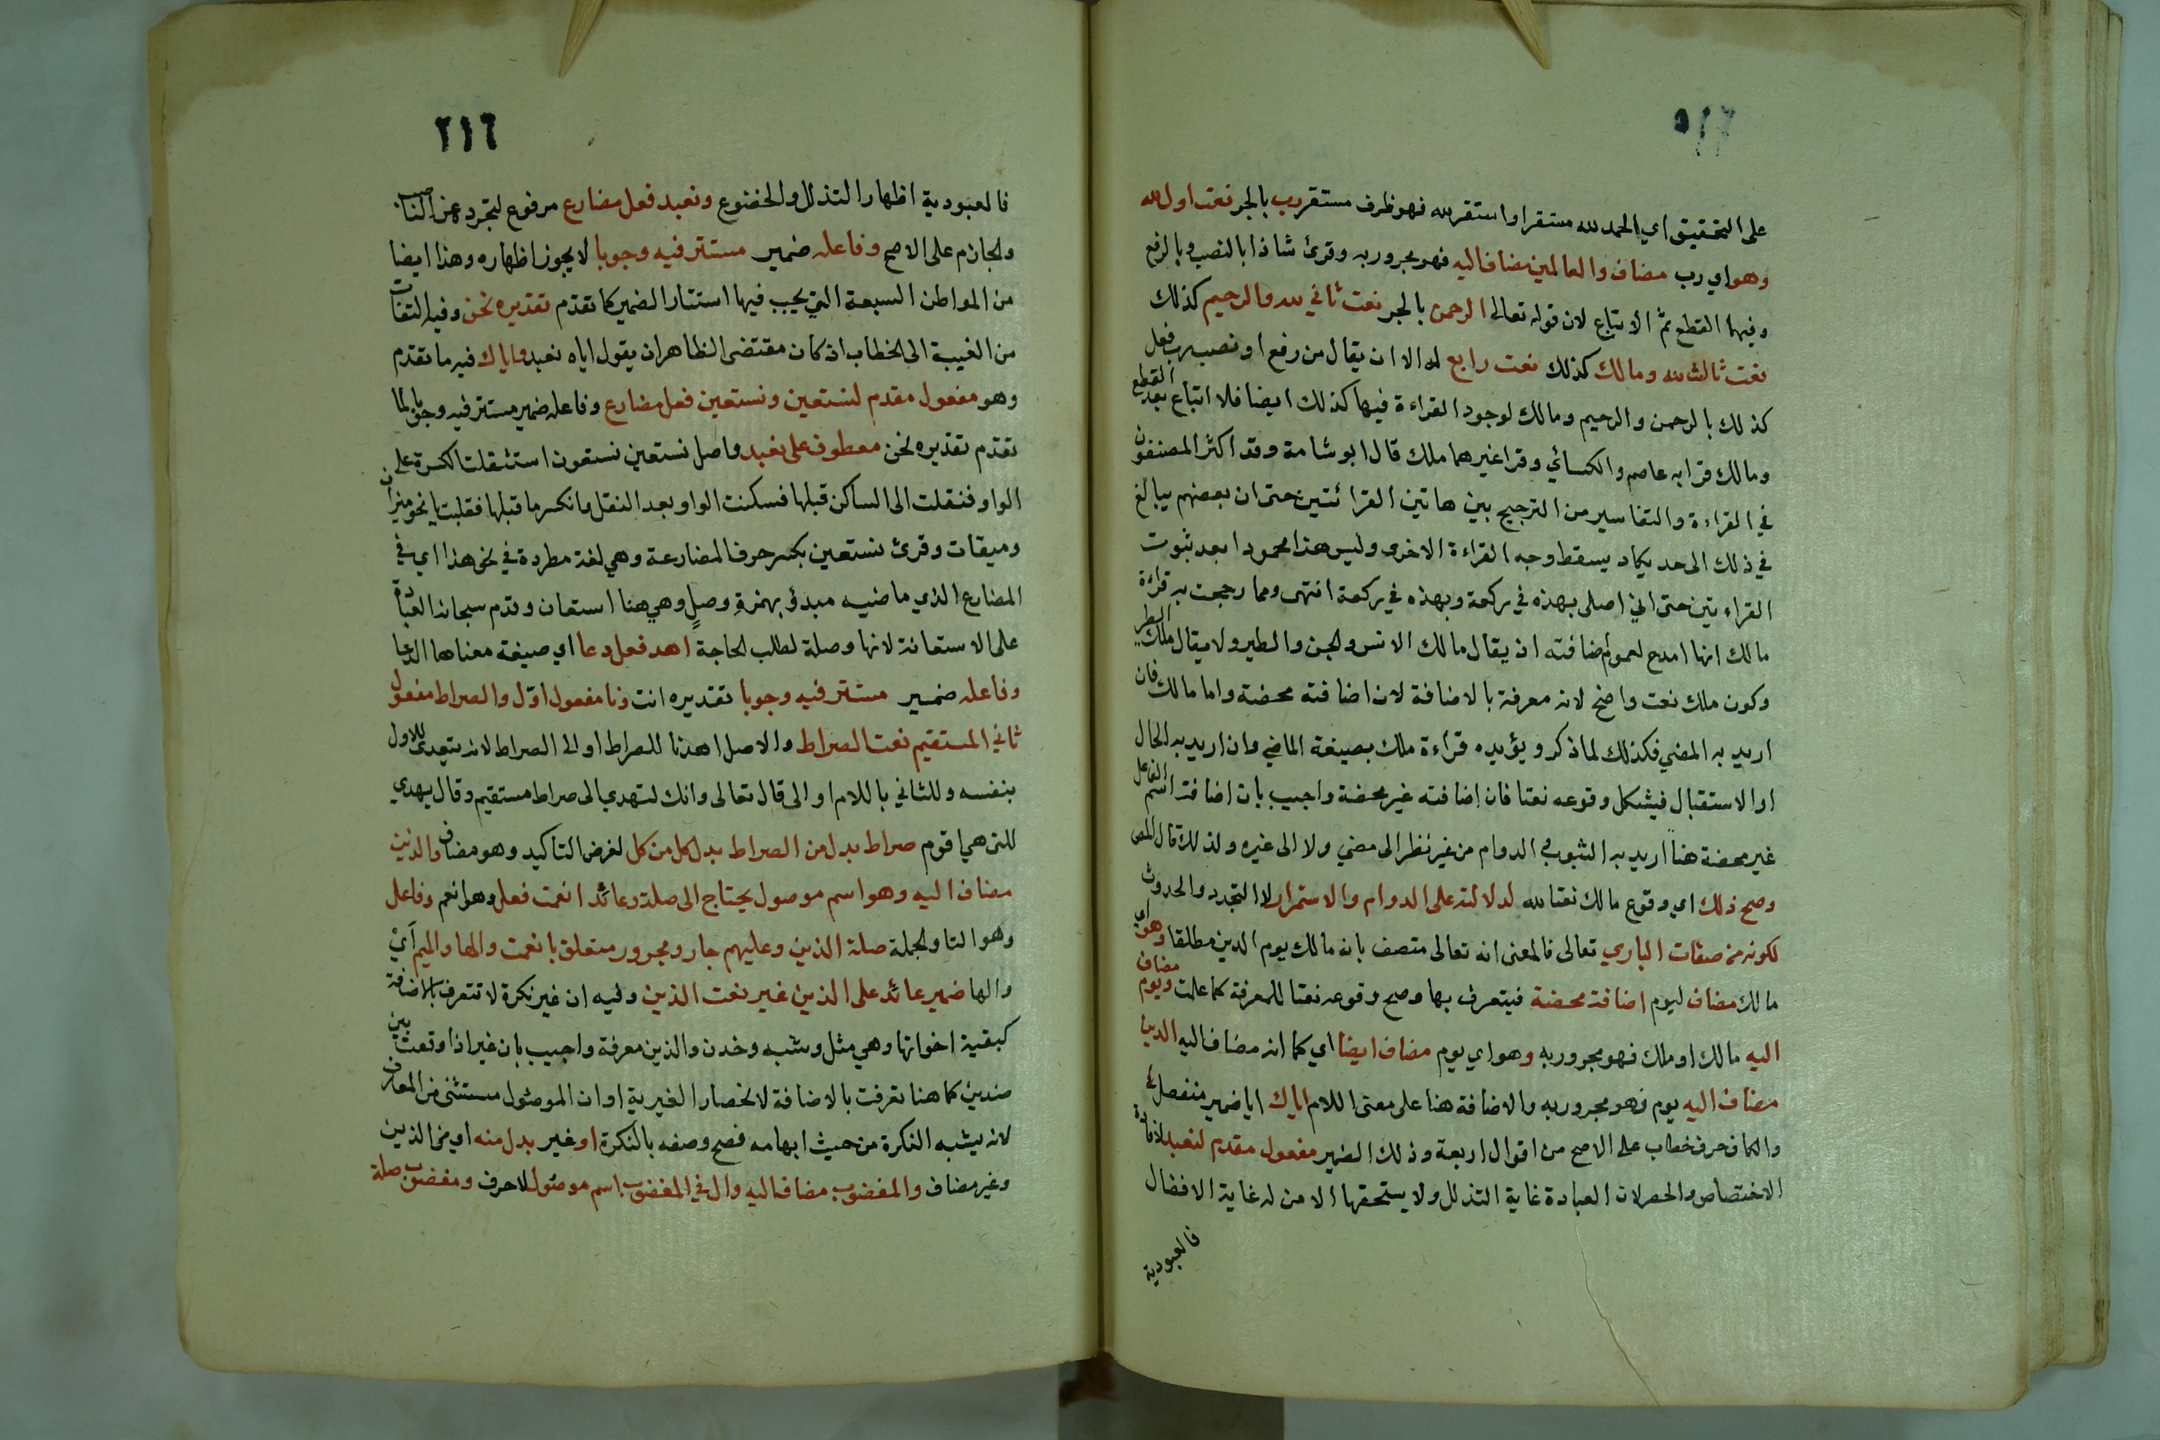 ٢١٥
على التحقيق اي الحمد لله مستقر او استقر لله فهو ظرف مستقر رب بالجر نعت اول لله
وهو اي رب مضاف والعالمين مضاف اليه فهو مجرور به وقرئ شاذا بالنصب وبالرفع
وفيهما القطع ثم الاتباع لان قوله تعالى الرحمن بالجر نعت ثاني لله والرحيم كذلك
نعت ثالث لله ومالك كذلك نعت رابع له الا ان يقال من رفع او نصب رب فعل
كذلك بالرحمن والرحيم ومالك لوجود القراءة فيها كذلك ايضا فلا اتباع بعد القطع
ومالك قرا به عاصم والكسائي وقرا غيرهما ملك قال ابو شامة وقد اكثر المصنفون
في القراءة والتفاسير من الترجيح بين هاتين القرائتين حتى ان بعضهم يبالغ
في ذلك الى حد يكاد يسقط وجه القراءة الاخرى وليس هذا محمودا بعد ثبوت
القراءتين حتى اني اصلى بهذه في ركعة وبهذه في ركعة انتهى ومما رجحت به قراءة
مالك انها امدح لعموم اضافته اذ يقال مالك الانس والجن والطير ولا يقال ملك الطير
وكون ملك نعت واضح لانه معرفة بالاضافة لان اضافته محضة واما مالك فان
اريد به المضي فكذلك لما ذكر ويؤيده قراءة ملك بصيغة الماضي وان اريد به الحال
او الاستقبال فيشكل وقوعه نعتا فان اضافته غير محضة واجيب بان اضافة اسم الفاعل
غير محضة هنا اريد به الثبوت الدوام من غير نظر الى مضي ولا الى غيره ولذلك قال المص
وصح ذلك اي وقوع مالك نعتا لله لدلالته على الدوام والاستمرار لا التجدد والحدوث
لكونه من صفات الباري تعالى فالمعنى انه تعالى متصف بانه مالك يوم الدين مطلقا وهو اي
مالك مضاف ليوم اضافة محضة فيتعرف بها وصح وقوعه نعتا للمعرفة كما علمت ويوم مضاف
اليه مالك او ملك فهو مجرور به وهو اي يوم مضاف ايضا اي كما انه مضاف اليه الدين
مضاف اليه يوم فهو مجرور به والاضافة هنا على معنى اللام اياك ايا ضمير منفصل
والكاف حرف خطاب على الاصح من اقوال اربعة وذلك الضمير مفعول مقدم لنعبد لافادة
الاختصاص والحصر لان العبادة غاية التذلل ولا يستحقها الا من له غاية الافضال
فالعبودية
٢١٦
فالعبودية اظهار التذلل والخضوع ونعبد فعل مضارع مرفوع لتجرده عن الناصب
والجازم على الاصح وفاعله ضمير مستتر فيه وجوبا لا يجوز اظهاره وهذا ايضا
من المواطن السبعة التي يجب فيها استتار الضمير كما تقدم تقديره نحن وفيه التفات
من الغيبة الى الخطاب اذ كان مقتضى الظاهر ان يقول اياه نعبد واياك فيه ما تقدم
وهو مفعول مقدم لنستعين ونستعين فعل مضارع وفاعله ضمير مستتر فيه وجوبا لما
تقدم تقديره نحن معطوف على نعبد واصل نستعين نستعون استثقلت الكسرة على
الواو فنقلت الى الساكن قبلها فسكنت الواو بعد النقل وانكسر ما قبلها فقلبت يا نحو ميزان
وميقات وقرئ نستعين بكسر حرف المضارعة وهي لغة مطردة في نحو هذا اي في
المضارع الذي ماضيه مبدؤ بهمزة وصل وهي هنا استعان وقدم سبحانه العبادة
على الاستعانة لانها وصلة لطلب الحاجة اهد فعل دعا اي صيغة معناها الدعا
وفاعله ضمير مستتر فيه وجوبا تقديره انت ونا مفعول اول والصراط مفعول
ثاني المستقيم نعت الصراط والاصل اهدنا للصراط او الى الصراط لانه يتعدى للاول
بنفسه وللثاني باللام او الى قال تعالى وانك لتهدي الى صراط مستقيم وقال يهدي
للتي هي اقوم صراط بدل من الصراط بدل كل من كل لغرض التاكيد وهو مضاف والذين
مضاف اليه وهو اسم موصول يحتاج الى صلة وعائد انعمت فعل وهو انعم وفاعل
وهو التا والجملة صلة الذين وعليهم جار ومجرور متعلق بانعمت والها والميم اي
والها ضمير عائد على الذين غير نعت الذين وفيه ان غير نكرة لا تتعرف بالاضافة
كبقية اخواتها وهي مثل وشبه وخدن والذين معرفة واجيب بان غير اذا وقعت بين
ضدين كما هنا تعرفت بالاضافة لانحصار الغيرية او ان الموصول مستثنى من المعارف
لانه يشبه النكرة من حيث ابهامه فصح وصفه بالنكرة او غير بدل منه اي من الذين
وغير مضاف والمغضوب مضاف اليه وال في المغضوب اسم موصول لا حرف ومغضوب صلة